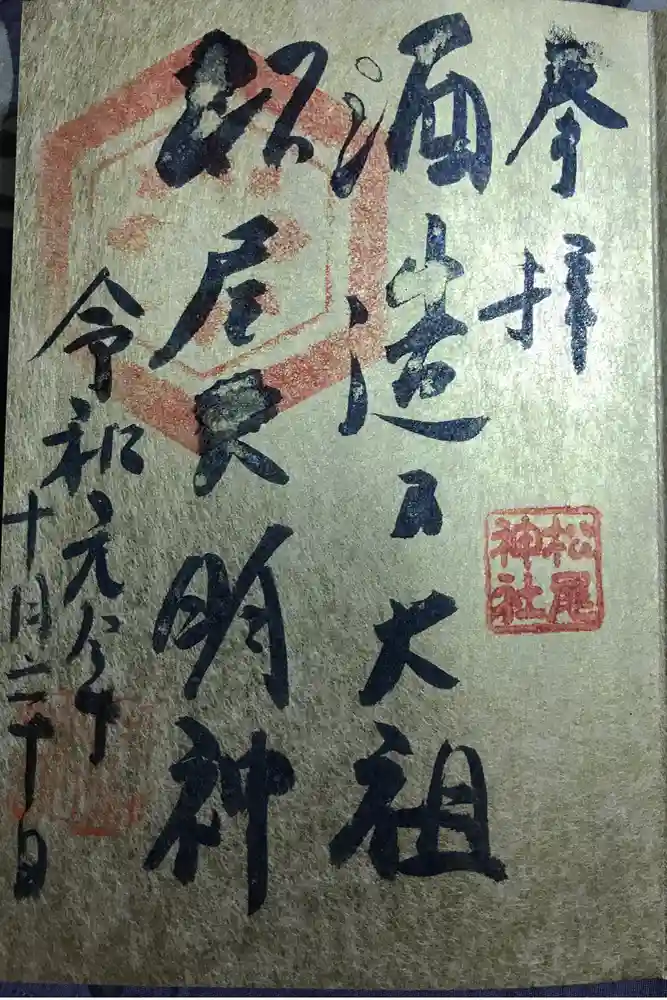 奉拝
松尾
神社
酒造乃大祖
松尾大明神
令和元年
十月二十日